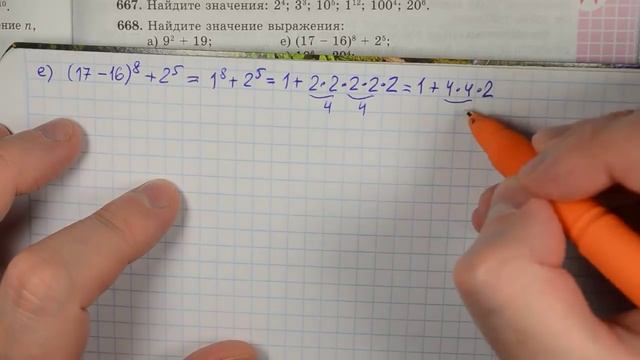 667. Найдите значения: 2⁴; 3³; 10⁵; 1¹²; 100⁴; 20⁶.
ение n,
668. Найдите значение выражения:
а) 9² + 19; е) (17 − 16)⁸ + 2⁵;
е) (17 − 16)⁸ + 2⁵ = 1⁸ + 2⁵ = 1 + 2·2·2·2·2 = 1 + 4·4·2
4 4